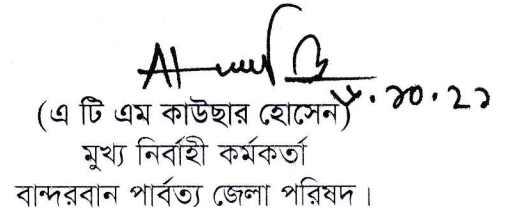 (এ টি এম কাউছার হোসেন)
মুখ্য নির্বাহী কর্মকর্তা
বান্দরবান পার্বত্য জেলা পরিষদ।